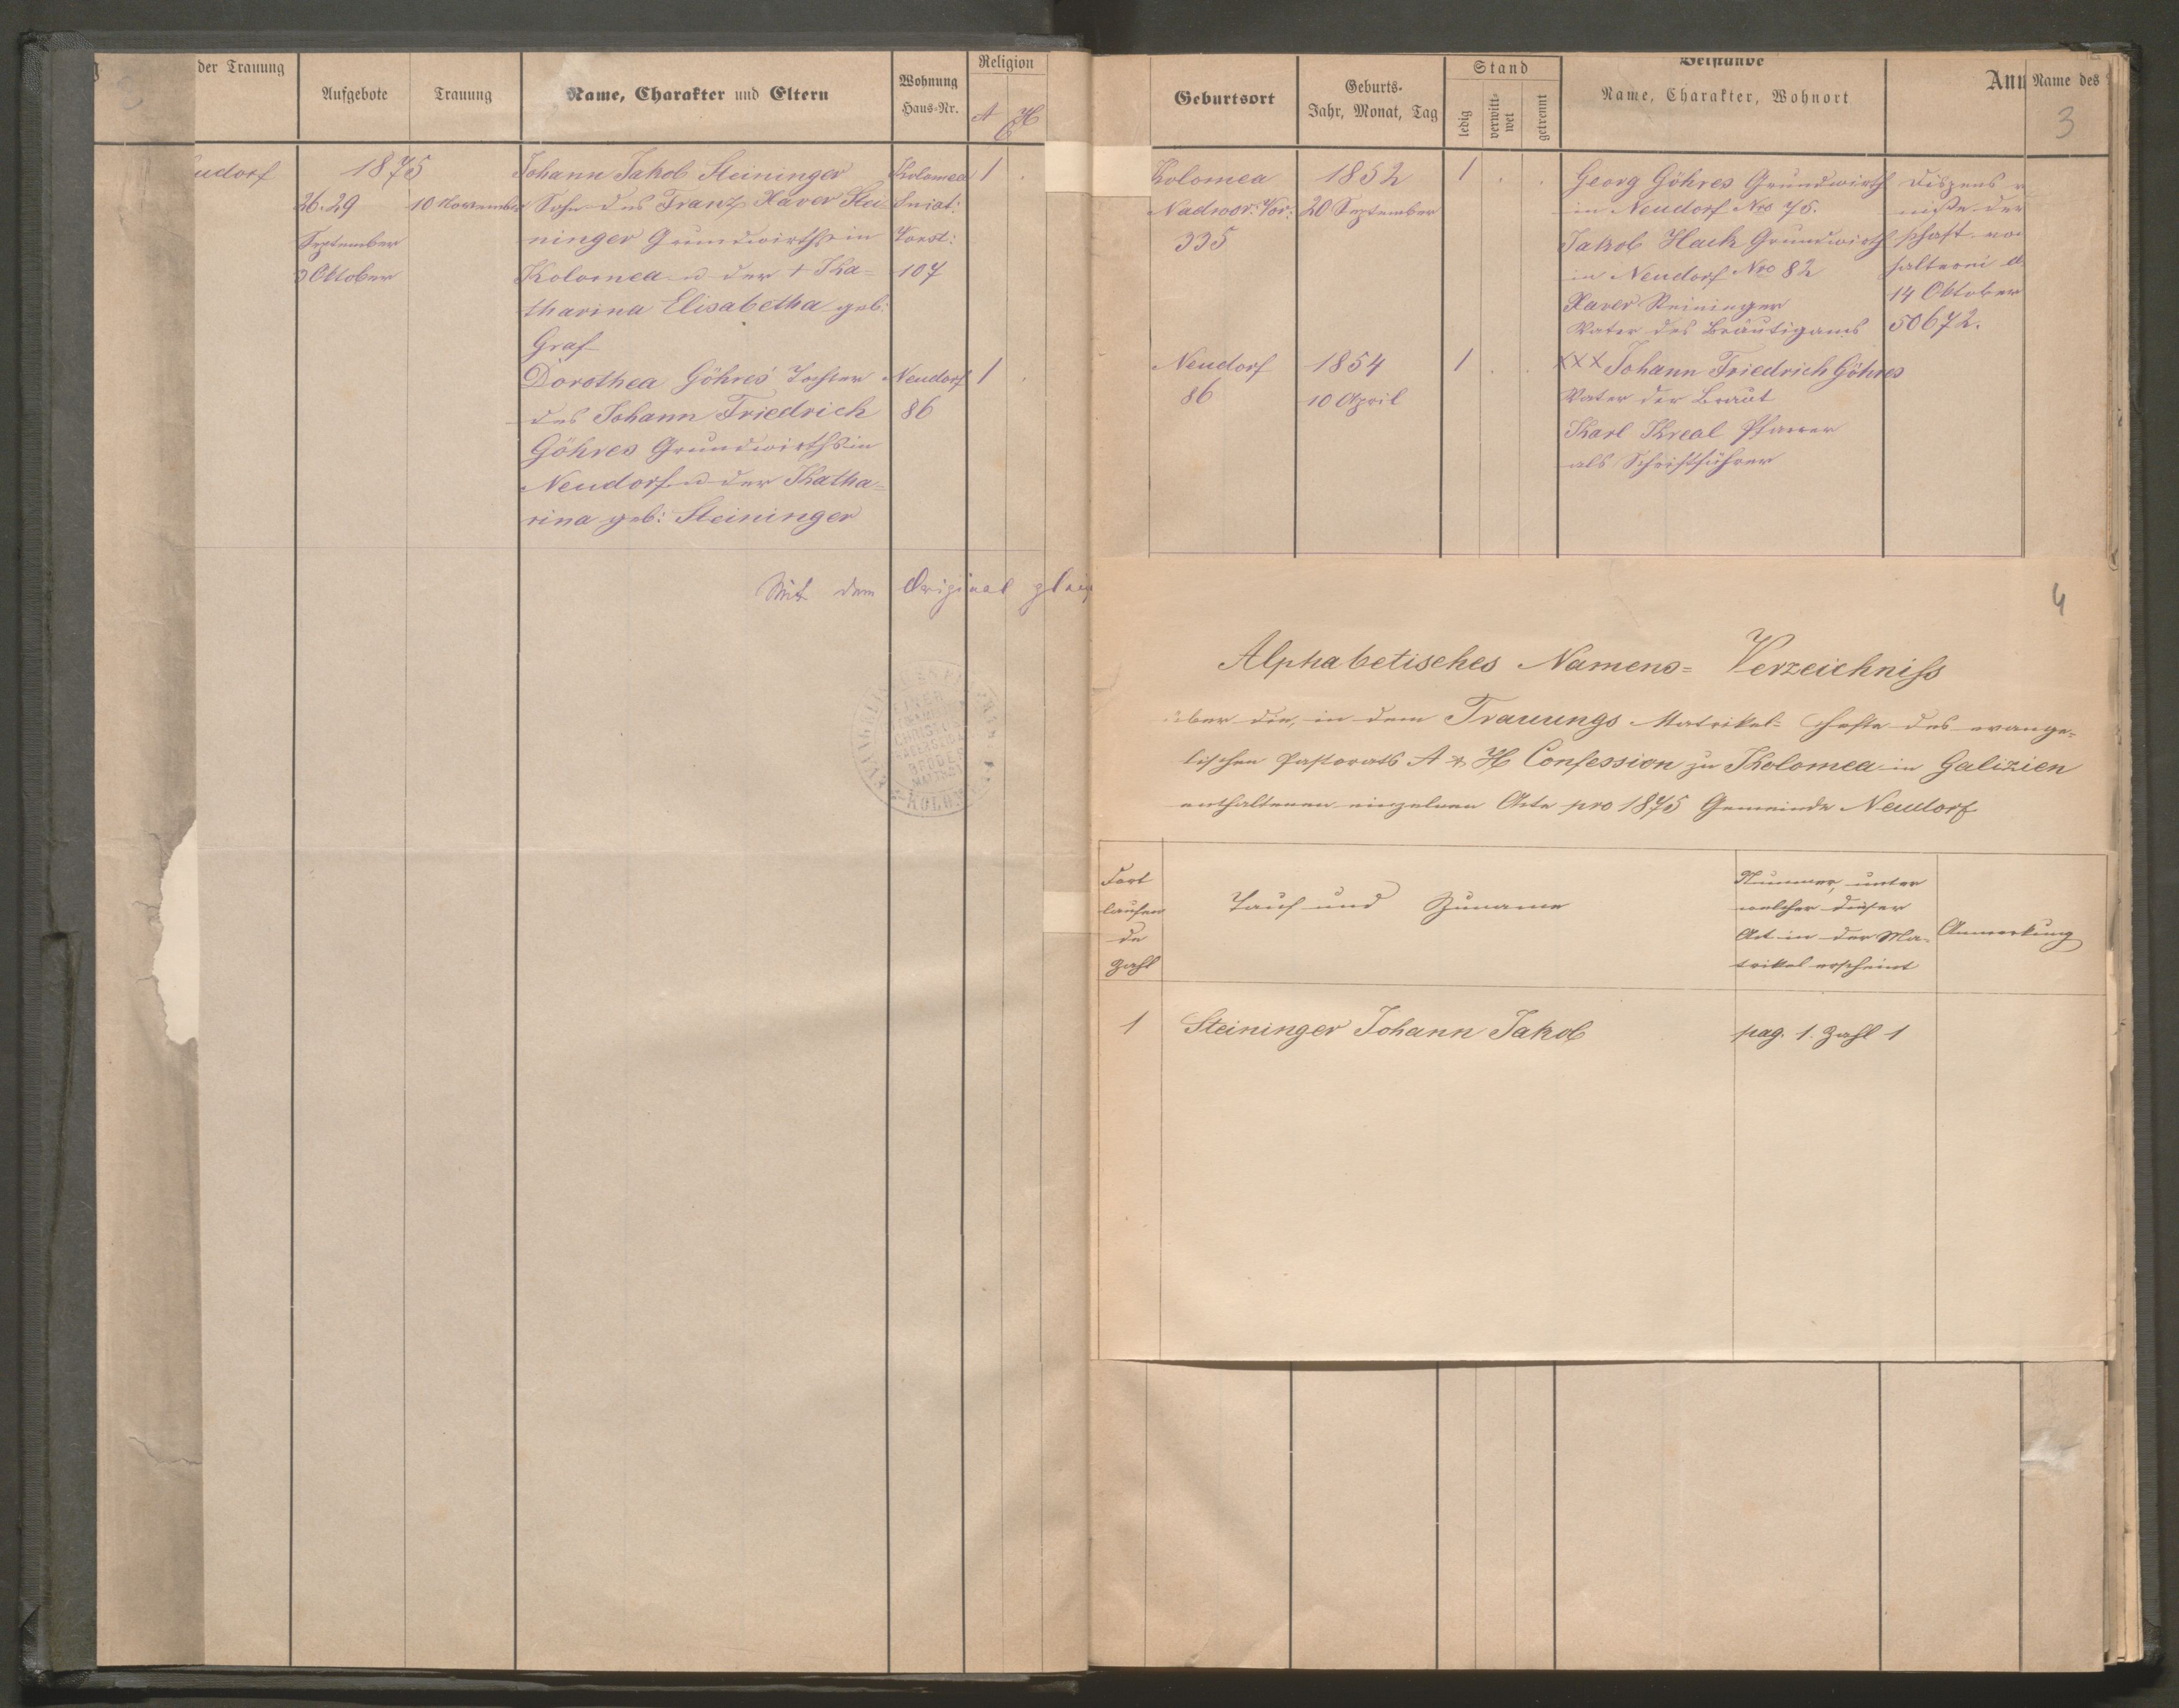 der Trauung
Aufgebote
Trauung
Name, Charakter und Eltern
Wohnung
Haus-Nr.
Religion
A H
C
udorf
1875
26. 29
September
3 Oktober
10 November
Johann Jakob Steininger
Sohn des Franz Xaver Stei-
ninger Grundwirths in
Kolomea u der + Ka=
tharina Elisabetha geb:
Graf
Kolomea
Sniat:
Vorst:
107
1 .
Dorothea Göhres Tochter
des Johann Friedrich
Göhres Grundwirths in
Neudorf u der Katha=
rina geb: Steininger
Neudorf
86
1 .
Mit dem Original gleich
KOLOM
Geburtsort
Geburts-
Jahr, Monat, Tag
Stand
ledig
verwitt-
wet
getrennt
Beistände
Name, Charakter, Wohnort
Ann
Name des
3
Kolomea
Nadwor: Vor:
335
1852
20 September
1 . .
Georg Göhres Grundwirth
in Neudorf Nro 75.
Jakob Hack Grundwirth
in Neudorf Nro 82
Xaver Steininger
Vater des Bräutigams
Dispens v
nisse der
schaft vo
halterei d
14 Oktober
50672.
Neudorf
86
1854
10 April
1 . .
XXX Johann Friedrich Göhres
Vater der Braut
Karl Kreal Pfarrer
als Schriftführer
4
Alphabetisches Namens= Verzeichniss
über die, in dem Trauungs Matrikel= Hefte des evange=
lischen Pastorats A & H Confession zu Kolomea in Galizien
enthaltenen einzelnen Acte pro 1875 Gemeinde Neudorf
Fort
laufen
de
Zahl
Tauf und Zuname
Nummer, unter
welcher dieser
Act in der Ma-
trikel erscheint
Anmerkung
1 Steininger Johann Jakob pag. 1. Zahl 1